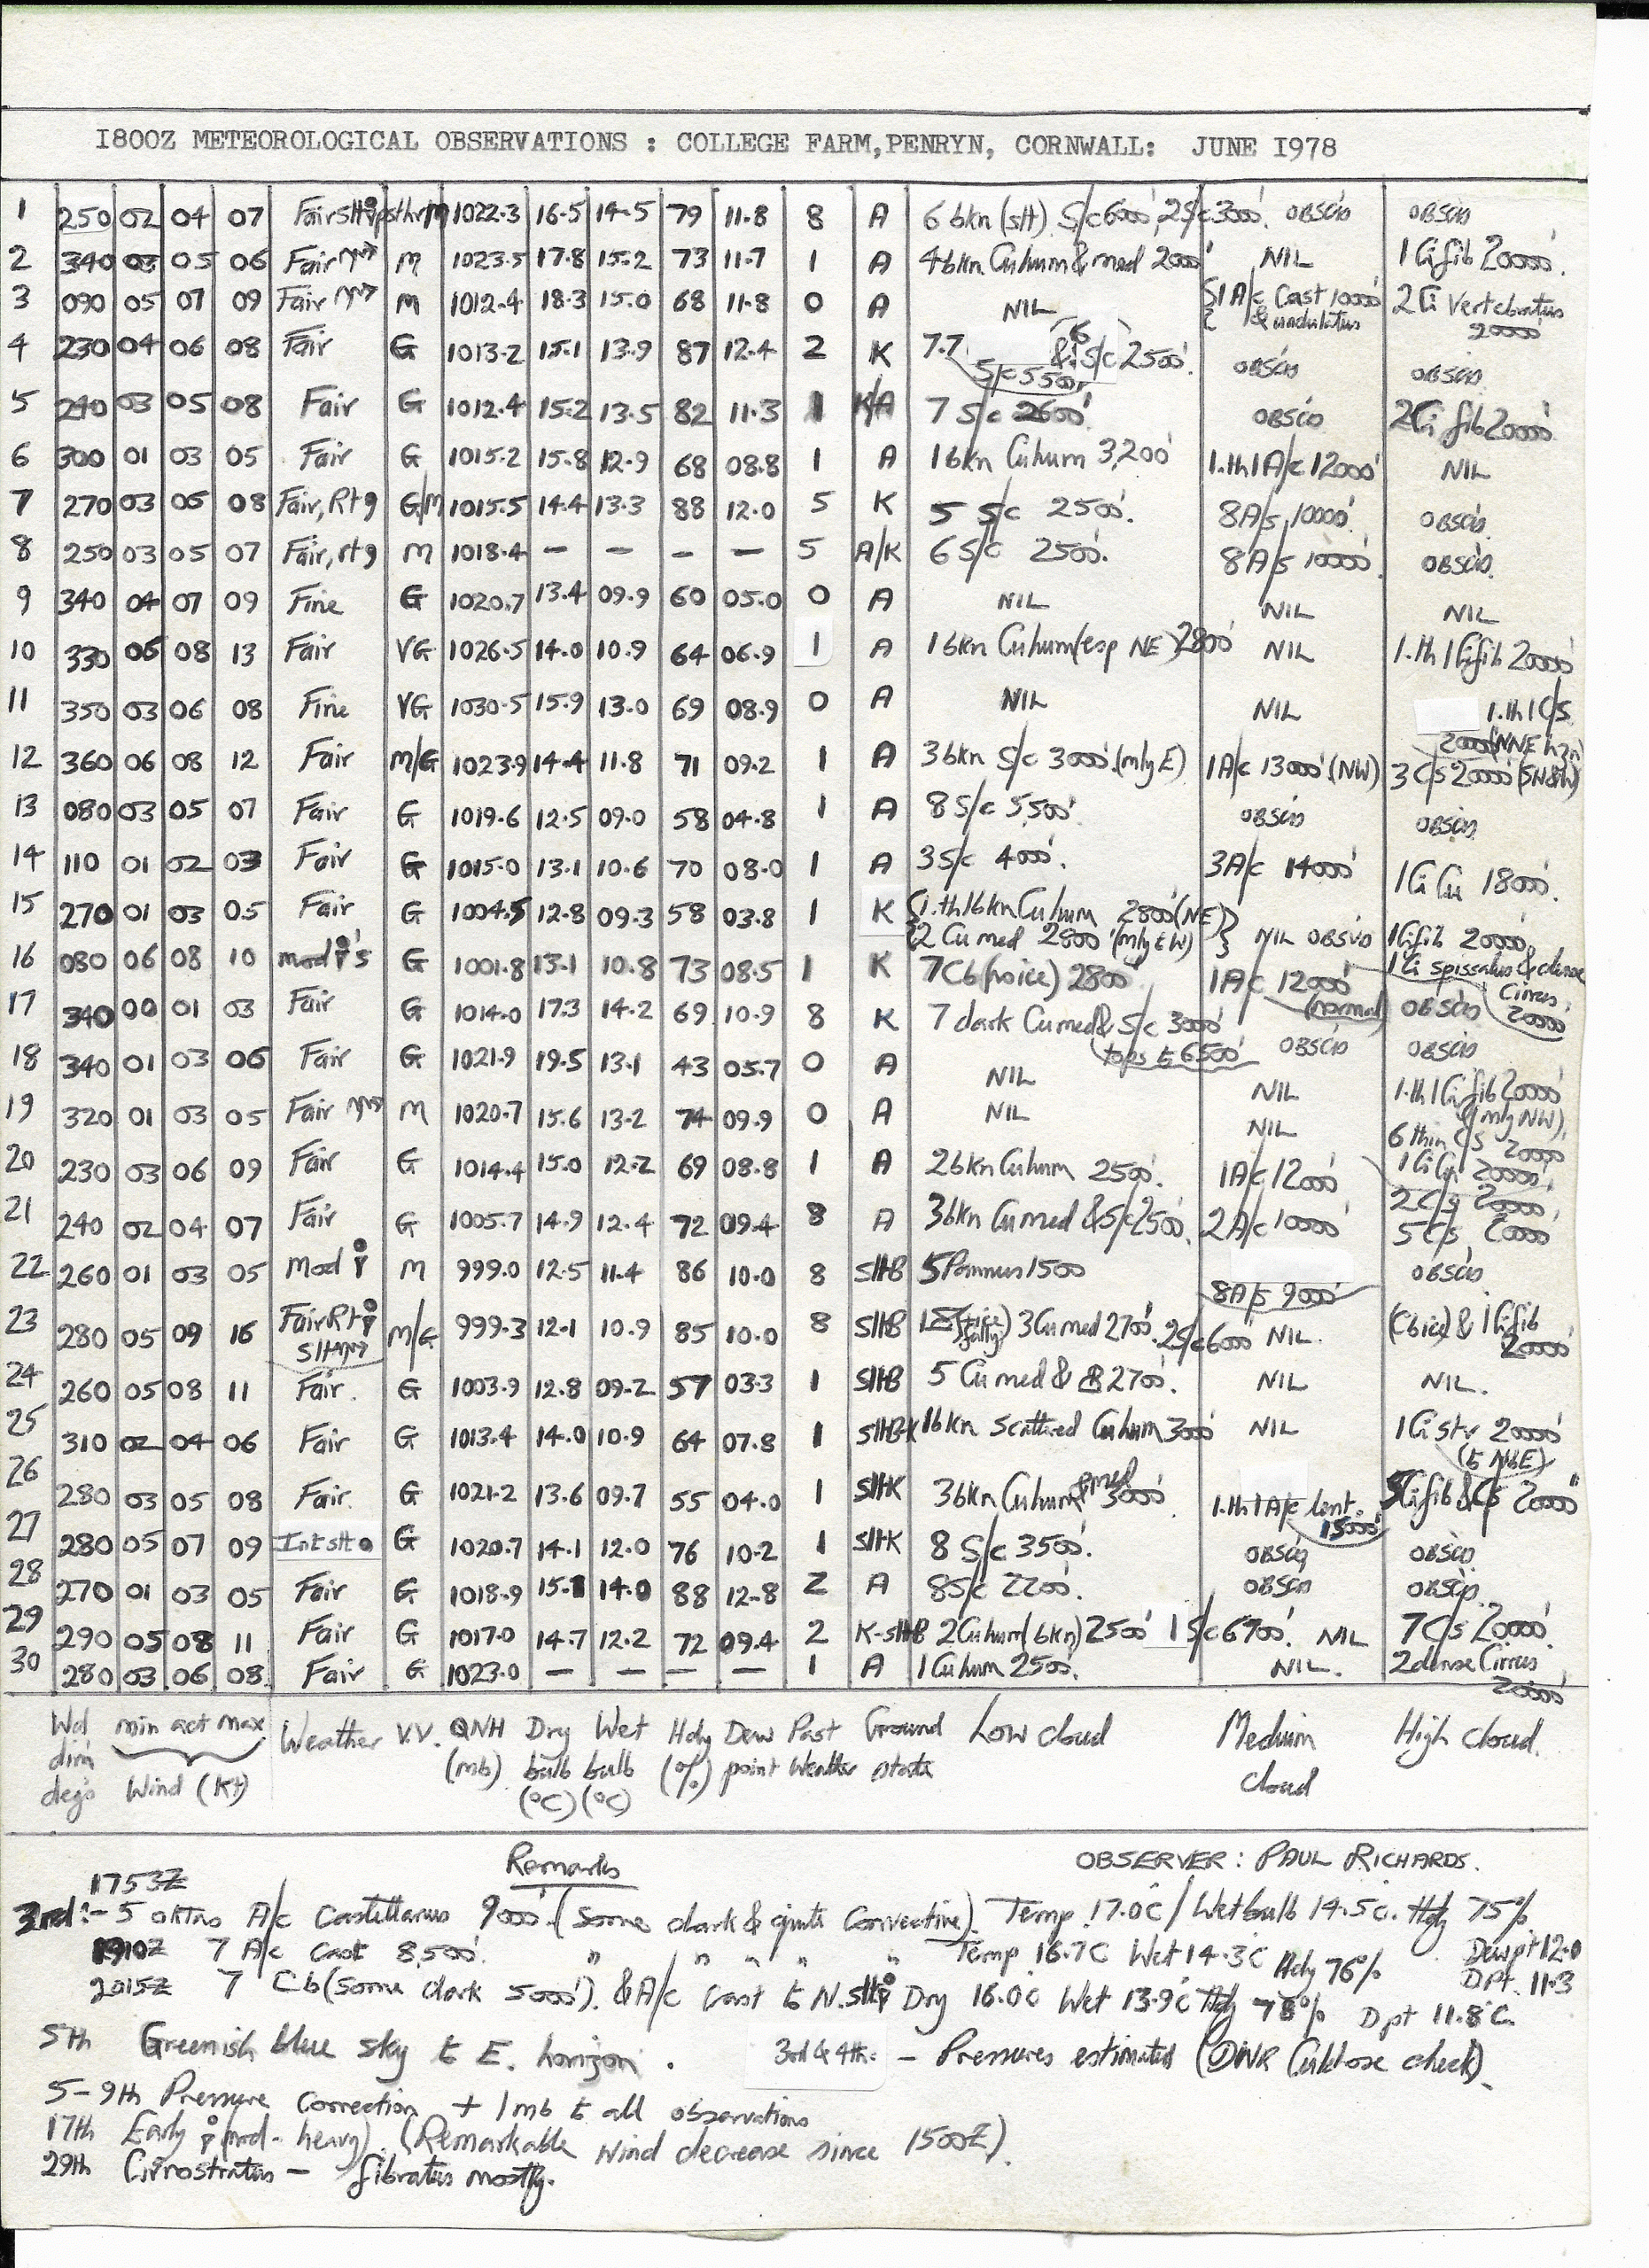 1800Z METEOROLOGICAL OBSERVATIONS : COLLEGE FARM, PENRYN, CORNWALL: JUNE 1978
1 250 02 04 07 Fair 1022.3 16.5 14.5 79 11.8 8 A 6 bkn (slt) S/c 6000' 2S/c 3000'. OBSCD OBSCD
2 340 03 05 06 Fair M 1023.5 17.8 15.2 73 11.7 1 A 4 bkn Cu hum & med 2000' NIL 1 Ci fib 20000'.
3 090 05 07 09 Fair M 1012.4 18.3 15.0 68 11.8 0 A NIL 1 A/c Cast 10000' & undulatus 2 Ci Vertebratus 20000'
4 230 04 06 08 Fair G 1013.2 15.1 13.9 87 12.4 2 K 7.7 S/c 5500' & 6 S/c 2500'. OBSCD OBSCD
5 240 03 05 08 Fair G 1012.4 15.2 13.5 82 11.3 1 K/A 7 S/c 2600'. OBSCD 2Ci fib 20000'
6 300 01 03 05 Fair G 1015.2 15.8 12.9 68 08.8 1 A 1 bkn Cu hum 3,200' 1.th 1 A/c 12000' NIL
7 270 03 05 08 Fair, Rtg G/M 1015.5 14.4 13.3 88 12.0 5 K 5 S/c 2500'. 8A/s 10000'. OBSCD.
8 250 03 05 07 Fair, rtg M 1018.4 – – – – 5 A/K 6 S/c 2500'. 8 A/s 10000'. OBSCD.
9 340 04 07 09 Fine G 1020.7 13.4 09.9 60 05.0 0 A NIL NIL NIL
10 330 06 08 13 Fair VG 1026.5 14.0 10.9 64 06.9 1 A 1 bkn Cu hum (esp NE) 2800' NIL 1.th 1 Ci fib 20000'
11 350 03 06 08 Fine VG 1030.5 15.9 13.0 69 08.9 0 A NIL NIL 1.th 1 C/s 20000' (NNE hzn)
12 360 06 08 12 Fair M/G 1023.9 14.4 11.8 71 09.2 1 A 3 bkn S/c 3000'. (mly E) 1A/c 13000' (NW) 3 C/s 20000'
13 080 03 05 07 Fair G 1019.6 12.5 09.0 58 04.8 1 A 8 S/c 5,500'. OBSCD OBSCD
14 110 01 02 03 Fair G 1015.0 13.1 10.6 70 08.0 1 A 3 S/c 4000'. 3A/c 14000' 1 Ci Cu 18000'.
15 270 01 03 05 Fair G 1004.5 12.8 09.3 58 03.8 1 K 1.th 1 bkn Cu hum 2800' (NE) 2 Cu med 2800' (mly to W) NIL OBSVD 1 Ci fib 20000'
16 080 06 08 10 mod G 1001.8 13.1 10.8 73 08.5 1 K 7 Cb (no ice) 2800' 1 A/c 12000' (normal) 1 Ci spissatus & dense Cirrus 20000'
17 340 00 01 03 Fair G 1014.0 17.3 14.2 69 10.9 8 K 7 dark Cu med & S/c 3000' (tops to 6500' OBSCD OBSCD
18 340 01 03 06 Fair G 1021.9 19.5 13.1 43 05.7 0 A NIL NIL 1.th 1 Ci fib 20000' (mly NW).
19 320 01 03 05 Fair M 1020.7 15.6 13.2 74 09.9 0 A NIL NIL 6 thin C/s 20000
20 230 03 06 09 Fair G 1014.4 15.0 12.2 69 08.8 1 A 2 bkn Cu hum 2500'. 1A/c 12000' 1 Ci Cu 20000', 2 C/s 20000'
21 240 02 04 07 Fair G 1005.7 14.9 12.4 72 09.4 8 A 3 bkn Cu med & S/c 2500'. 2 A/c 10000' 5 C/s 20000'
22 260 01 03 05 Mod M 999.0 12.5 11.4 86 10.0 8 Slt B 5 Pannus 1500 8A/s 9000' OBSCD
23 280 05 09 16 Fair Rt M/G 999.3 12.1 10.9 85 10.0 8 Slt B 3 Cu med 2700'. 2S/c 6000 NIL. (Cb ice) & 1 Ci fib 20000'
24 260 05 08 11 Fair. G 1003.9 12.8 09.2 57 03.3 1 Slt B 5 Cu med & 2700'. NIL NIL.
25 310 02 04 06 Fair G 1013.4 14.0 10.9 64 07.8 1 Slt B-K 1 bkn Scattered Cu hum 3000' NIL 1 Ci str 20000' (to NbE)
26 280 03 05 08 Fair. G 1021.2 13.6 09.7 55 04.0 1 Slt K 3 bkn Cu hum & med 3000' 1.th 1 A/c lent. 15000' 5 Ci fib & C/s 20000'
27 280 05 07 09 Int slt G 1020.7 14.1 12.0 76 10.2 1 Slt K 8 S/c 3500'. OBSCD OBSCD
28 270 01 03 05 Fair G 1018.9 15.1 14.0 88 12.8 2 A 8 S/c 2200'. OBSCD OBSCD.
29 290 05 08 11 Fair G 1017.0 14.7 12.2 72 09.4 2 K-slt B 2 Cu hum (bkn) 2500' 1 S/c 6900'. NIL 7 C/s 20000'.
30 280 03 06 08 Fair G 1023.0 – – – – 1 A 1 Cu hum 2500'. NIL. 2 dense Cirrus 20000'
Wd dirn degs min act max Wind (Kt) Weather V.V. QNH (mb) Dry bulb (°C) Wet bulb (°C) Hdy (%) Dew point Past Weather Ground state Low cloud Medium cloud High cloud.
Remarks OBSERVER: PAUL RICHARDS.
1753Z
3rd:- 5 oktas A/c Castellanus 9000'. (Some dark & quite Convective). Temp 17.0C / Wet bulb 14.5C. Hdy 75% Dew pt 12.0
1910Z 7 A/c Cast 8,500'. " " " " " Temp 16.7C Wet 14.3C Hdy 76% D Pt. 11.3
2015Z 7 Cb (some dark 5000') & A/c Cast to N. slt Dry 16.0C Wet 13.9C Hdy 78% D pt 11.8C.
5th Greenish blue sky to E. horizon. 3rd & 4th. – Pressures estimated (Culdrose check)
5-9th Pressure Correction + 1mb to all observations
17th Early (mod-heavy). (Remarkable wind decrease since 1500Z).
29th Cirrostratus – fibratus mostly.